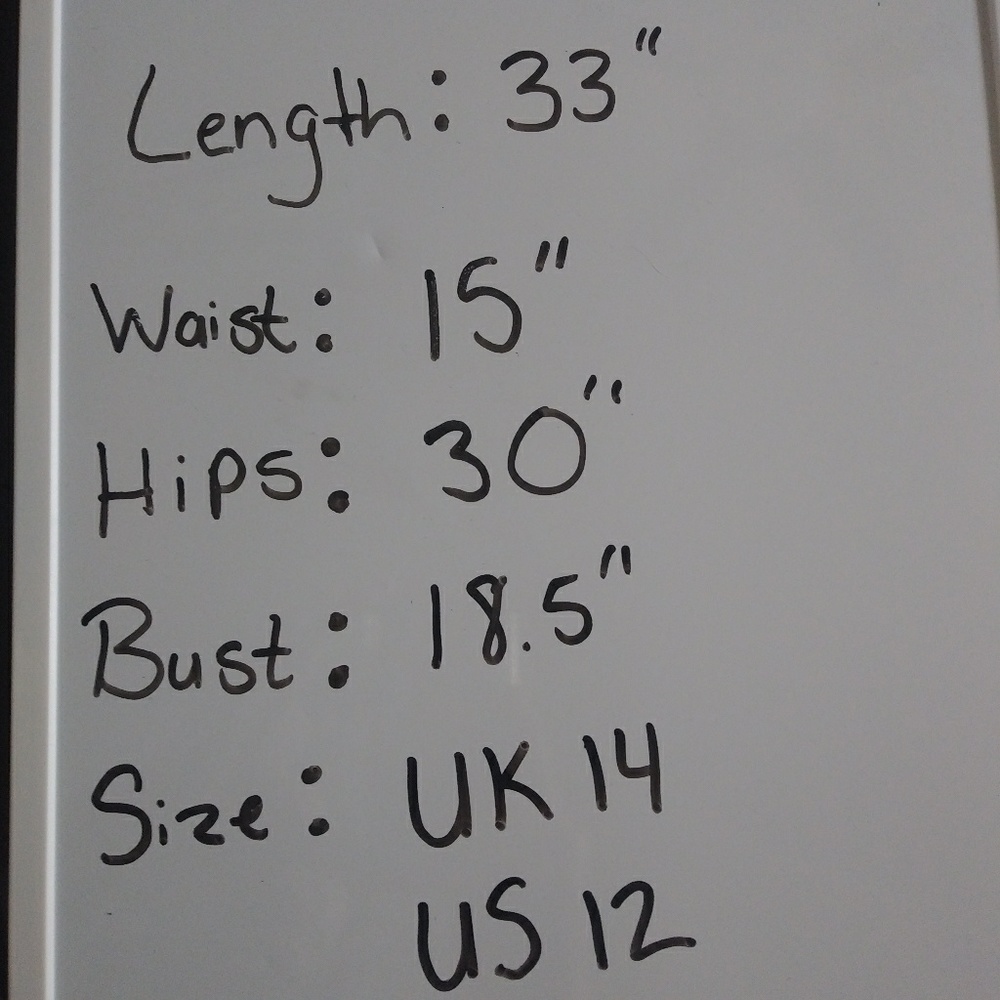 Length: 33"
Waist: 15"
Hips: 30"
Bust: 18.5"
Size: UK 14
US 12